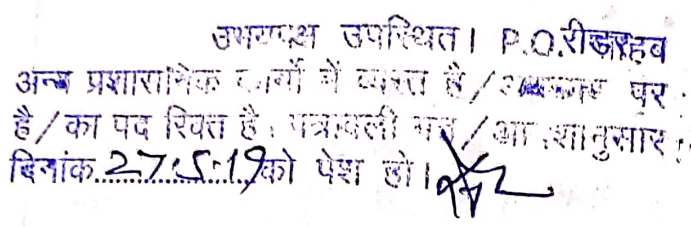 उभयपक्ष उपस्थित। P.O.
अन्य प्रशासनिक कार्यो में व्यस्त है/अवकाश पर
है/का पद रिक्त है। पत्रावली / आ शानुसार
दिनांक 27.5.19 को पेश हो।